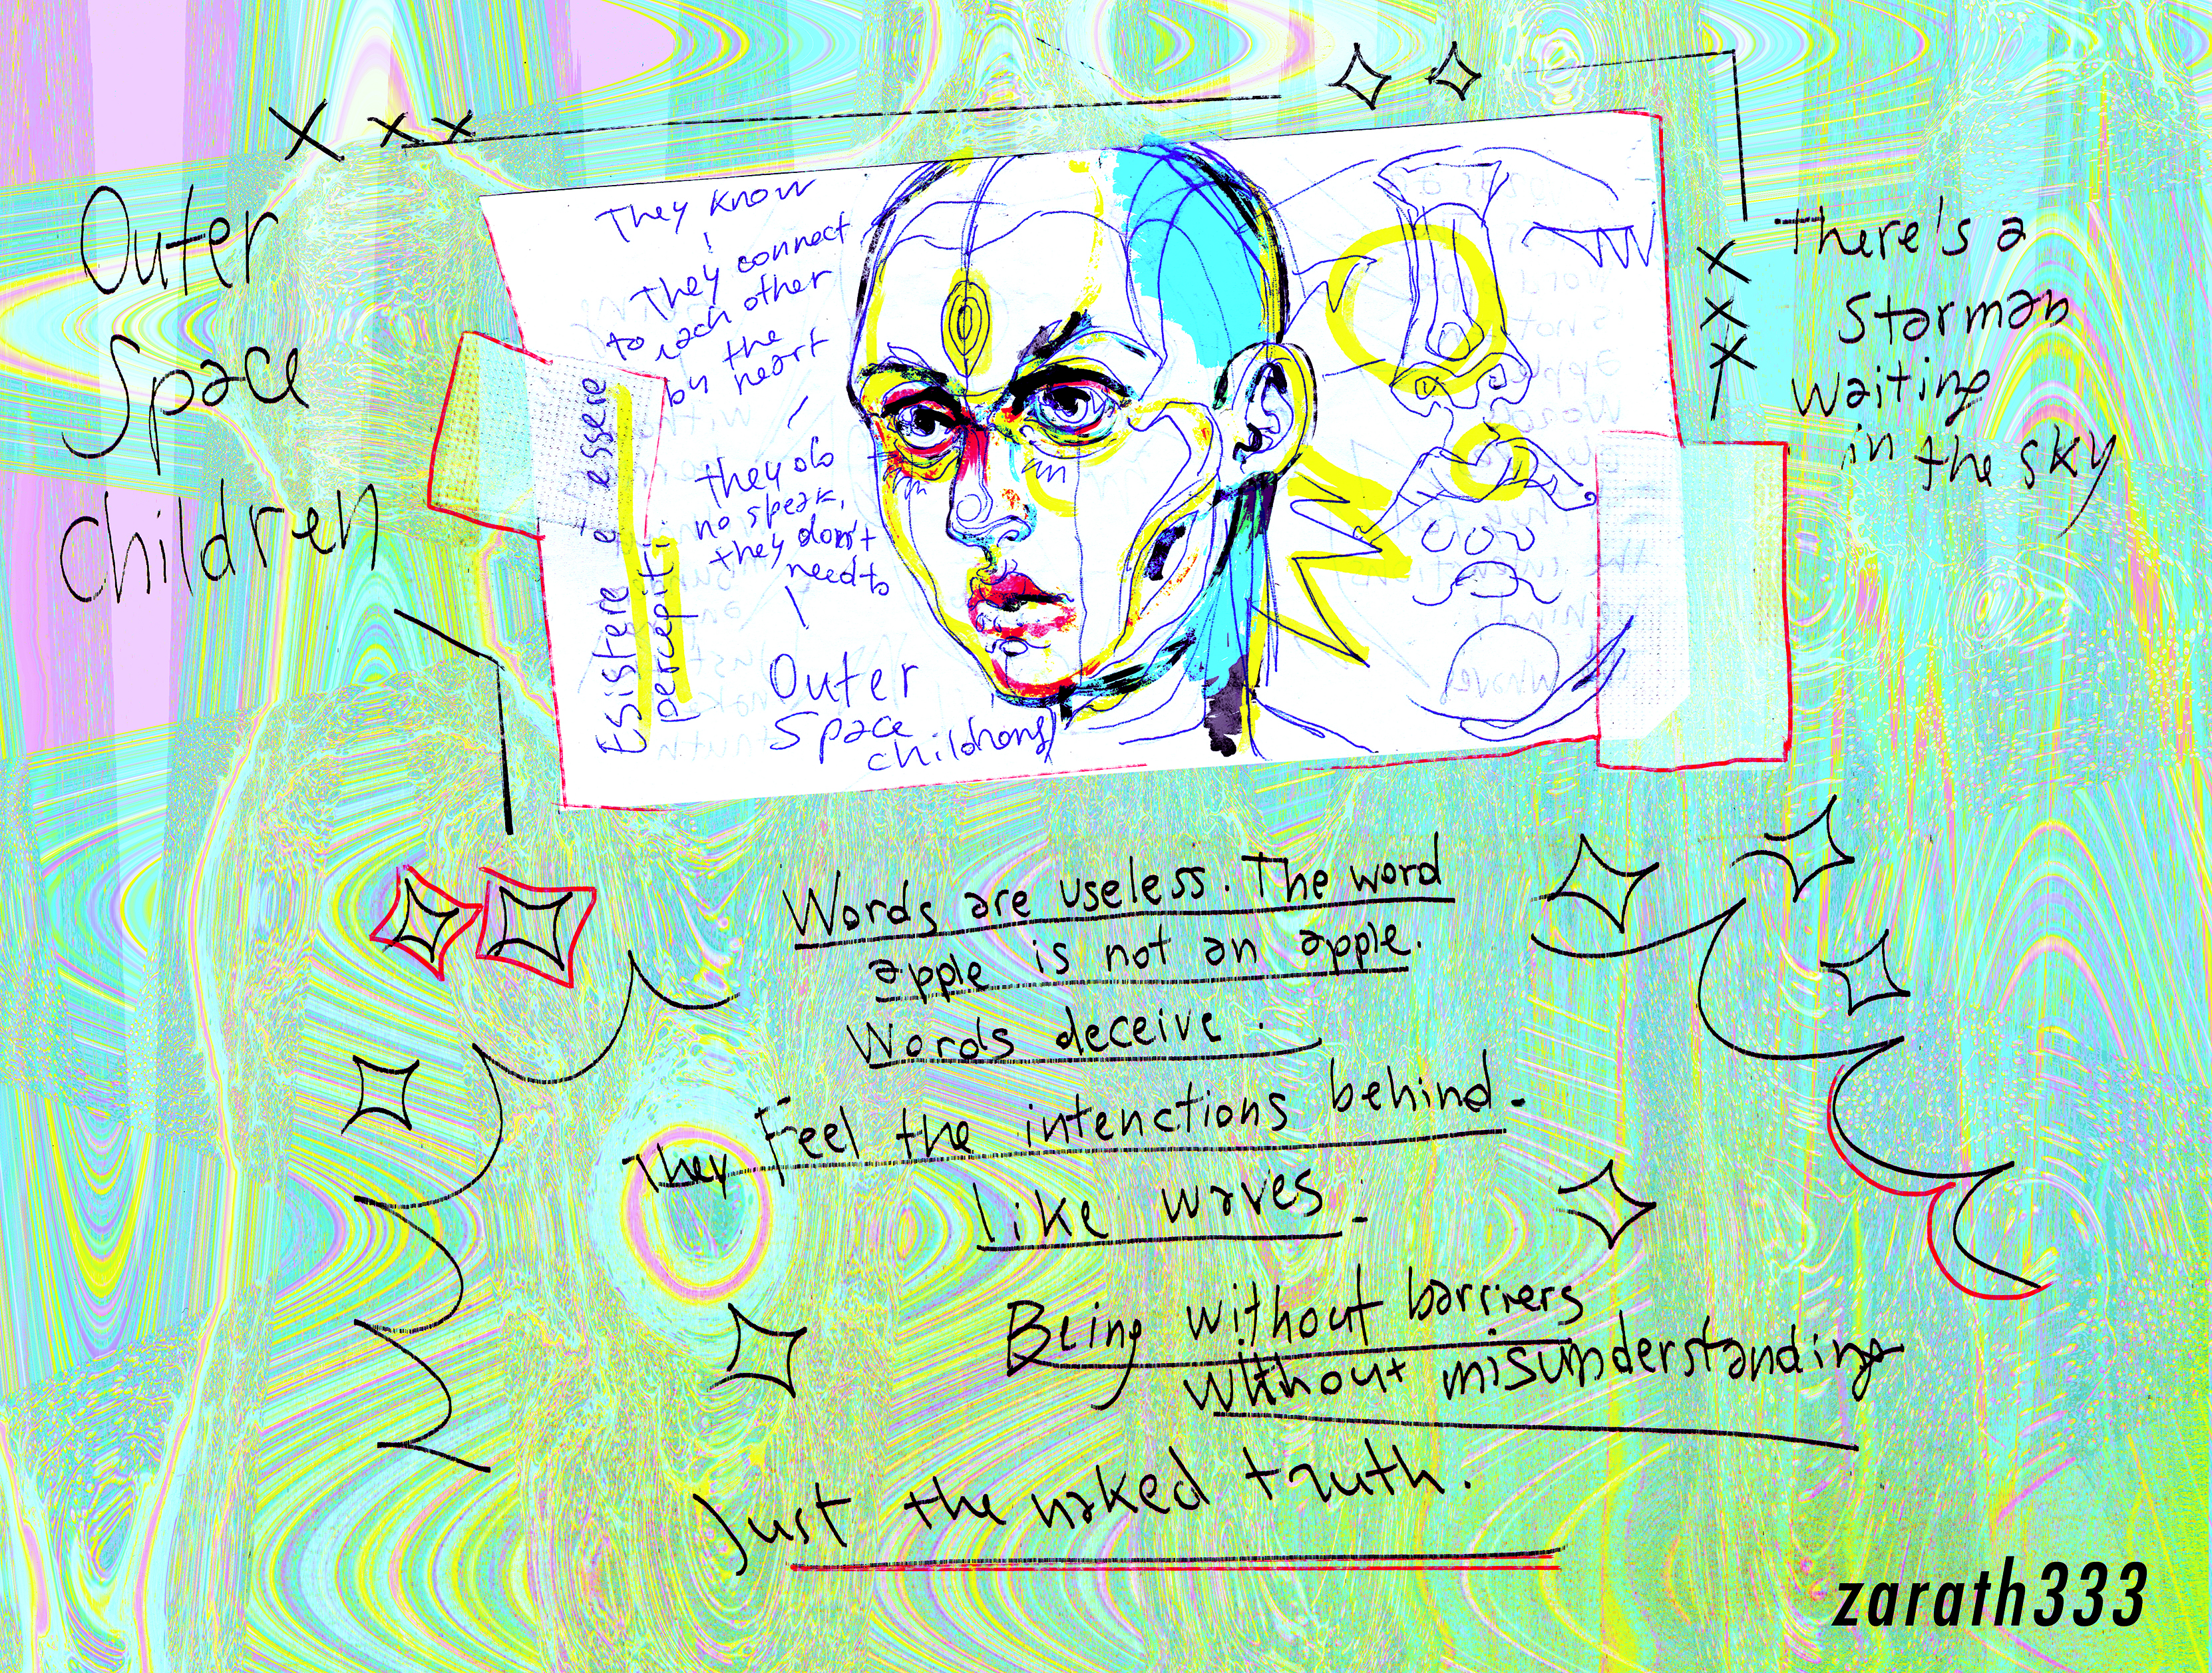 Outer
Space
children
They know
They connect
to each other
by the
heart
they do
no speak,
they don't
need to
Esistere è essere
percepiti
Outer
Space
There's a
Starman
waiting
in the sky
Words are useless. The word
apple is not an apple.
Words deceive.
They Feel the intenctions behind.
like waves.
Being without barriers
without misunderstanding
Just the naked truth.
zarath333